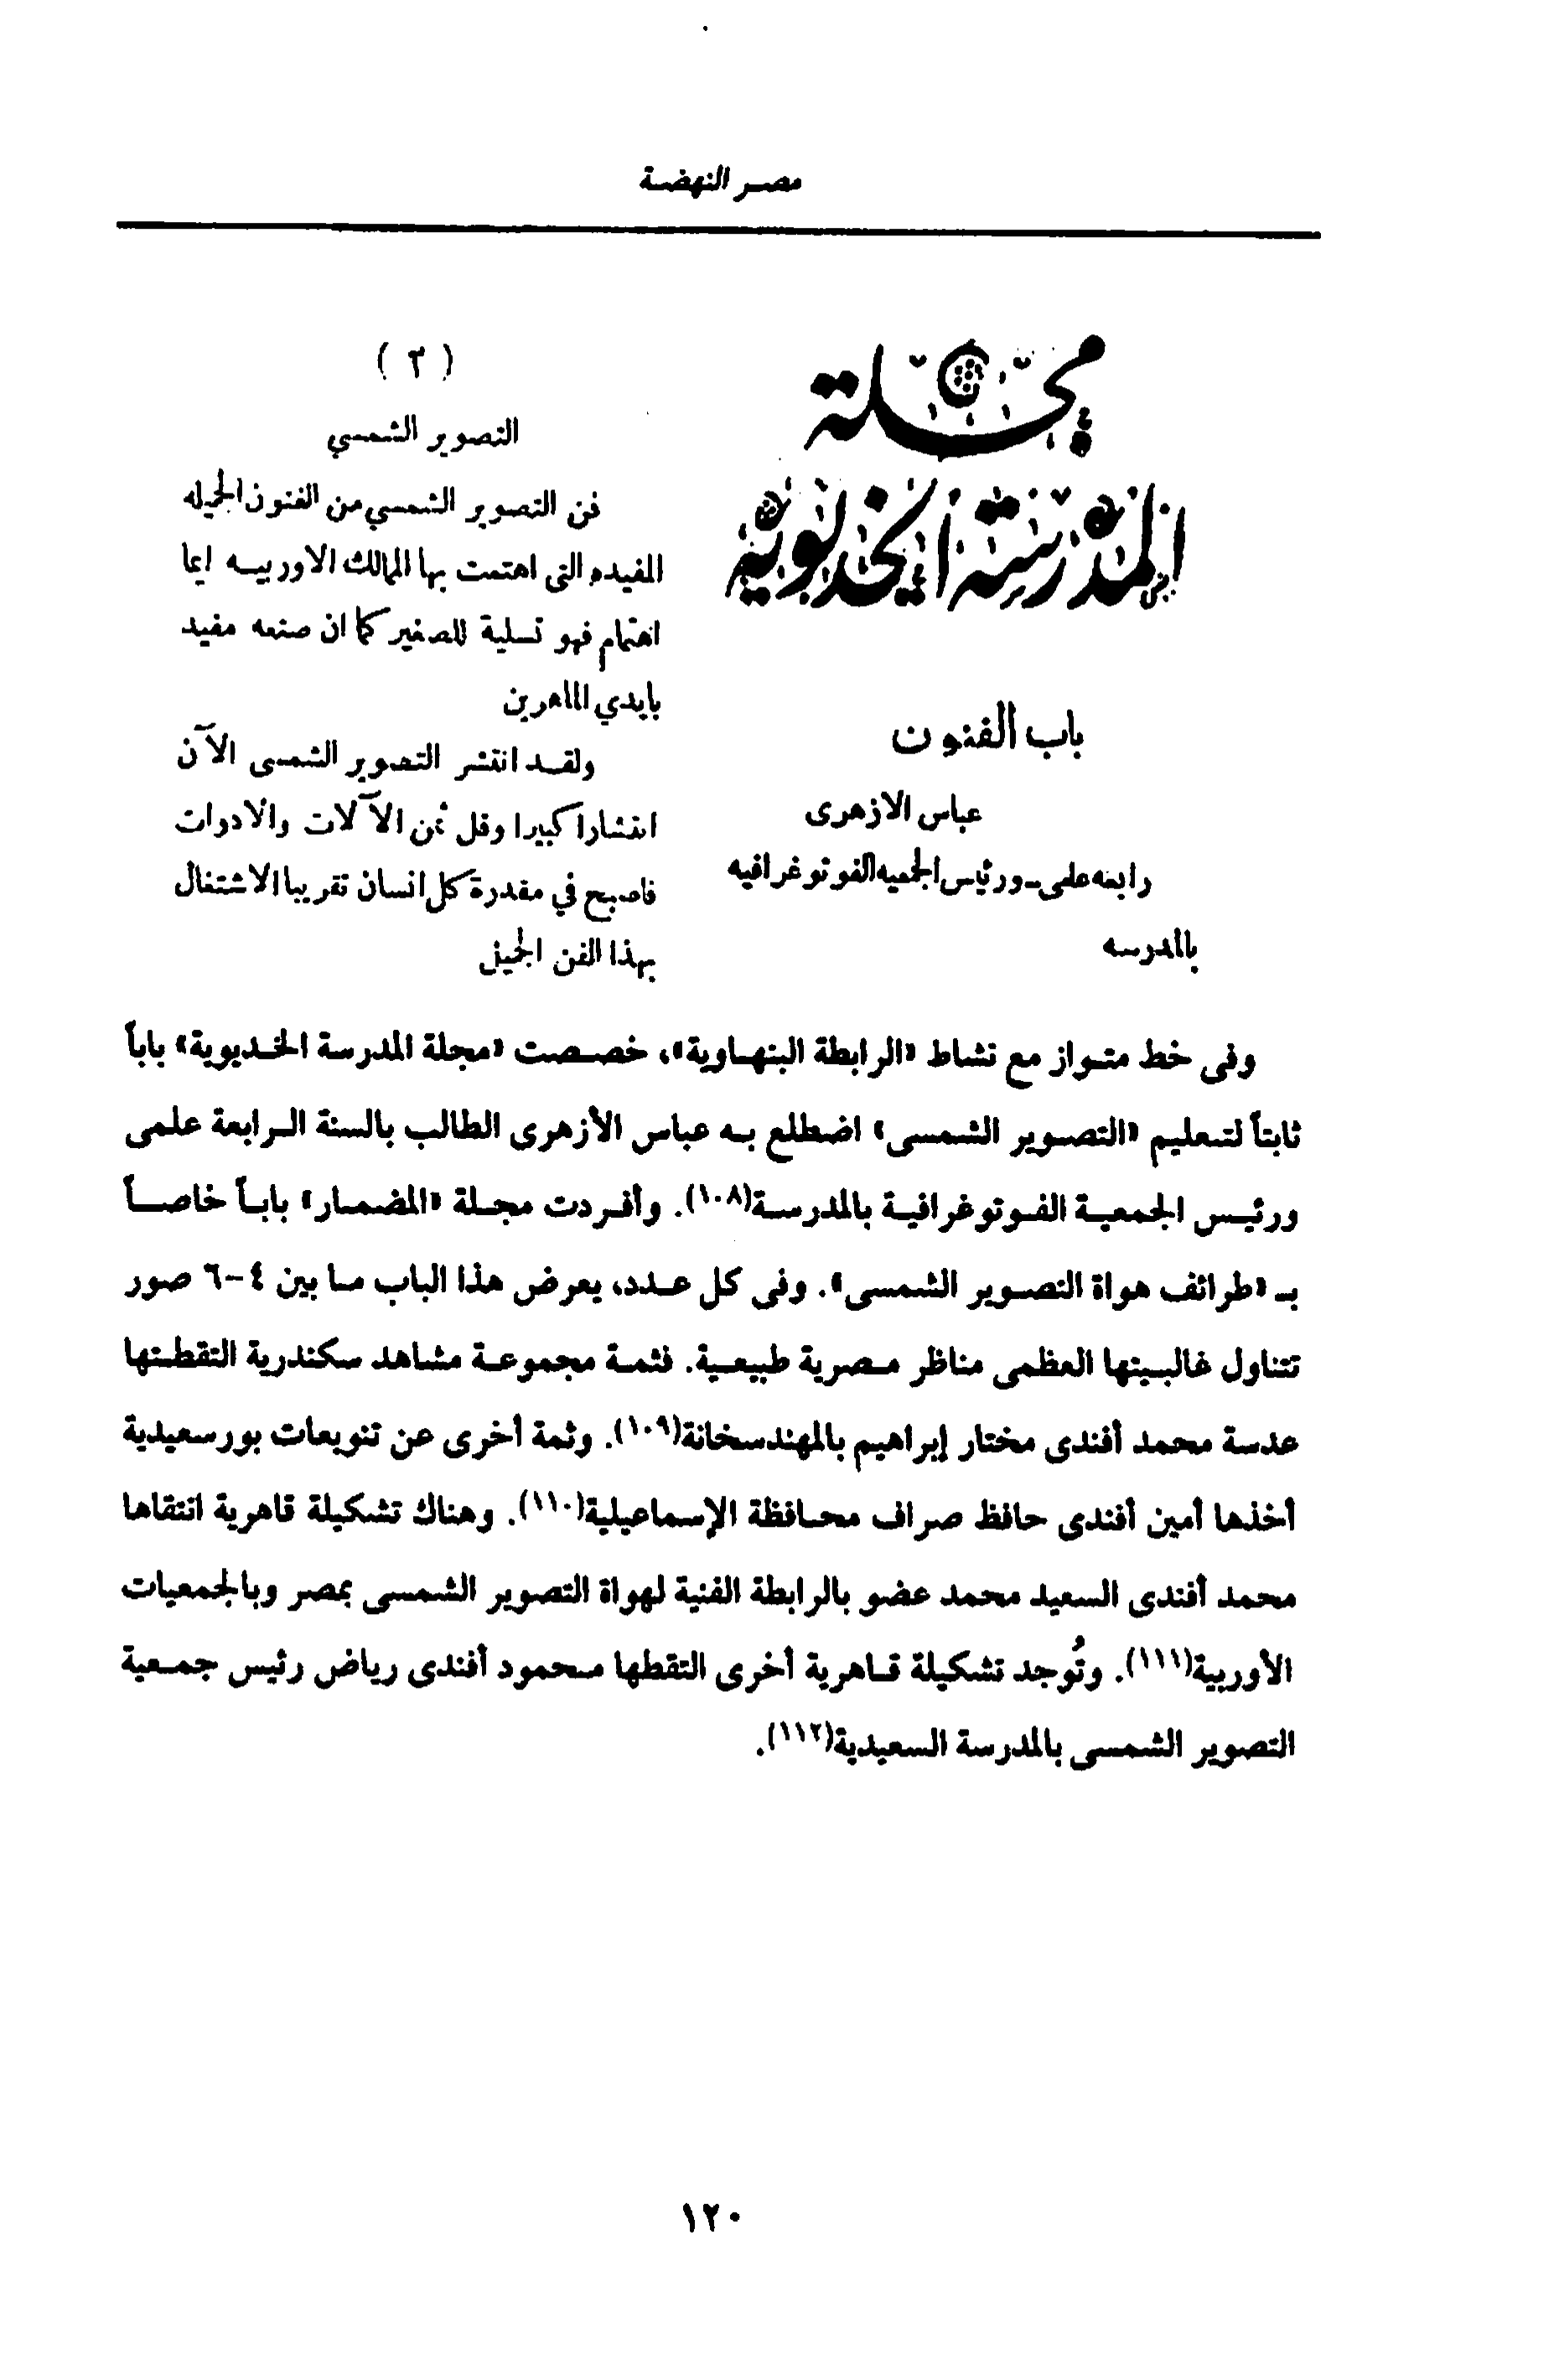 مصر النهضة
مجلة
المدرسة الخديوية
باب الفنون
عباس الازهرى
رابعه علمى ـ ورئيس الجمعيه الفوتوغرافيه
بالمدرسه
( ٢ )
التصوير الشمسي
فن التصوير الشمسي من الفنون الجميله
المفيده التى اهتمت بها الممالك الاوربيه ايما
اهتمام فهو تسلية للصغير كما ان صنعه مفيد
بايدي الماهرين
ولقد انتشر التصوير الشمسى الآن
انتشارا كبيرا وقل ثمن الآلات والادوات
فاصبح في مقدرة كل انسان تقريبا الاشتغال
بهذا الفن الجميل
وفى خط متواز مع نشاط «الرابطة البنهاوية»، خصصت «مجلة المدرسة الخديوية» باباً
ثابتاً لتعليم «التصوير الشمسى» اضطلع به عباس الأزهرى الطالب بالسنة الرابعة علمى
ورئيس الجمعية الفوتوغرافية بالمدرسة(١٠٨). وأفردت مجلة «المضمار» باباً خاصاً
بـ «طرائف هواة التصوير الشمسى». وفى كل عدد، يعرض هذا الباب ما بين ٤-٦ صور
تتناول غالبيتها العظمى مناظر مصرية طبيعية. فثمة مجموعة مشاهد سكندرية التقطتها
عدسة محمد أفندى مختار إبراهيم بالمهندسخانة(١٠٩). وثمة أخرى عن تنويعات بورسعيدية
أخذها أمين أفندى حافظ صراف محافظة الإسماعيلية(١١٠). وهناك تشكيلة قاهرية انتقاها
محمد أفندى السعيد محمد عضو بالرابطة الفنية لهواة التصوير الشمسى بمصر وبالجمعيات
الأوربية(١١١). وتُوجد تشكيلة قاهرية أخرى التقطها محمود أفندى رياض رئيس جمعية
التصوير الشمسى بالمدرسة السعيدية(١١٢).
١٢٠